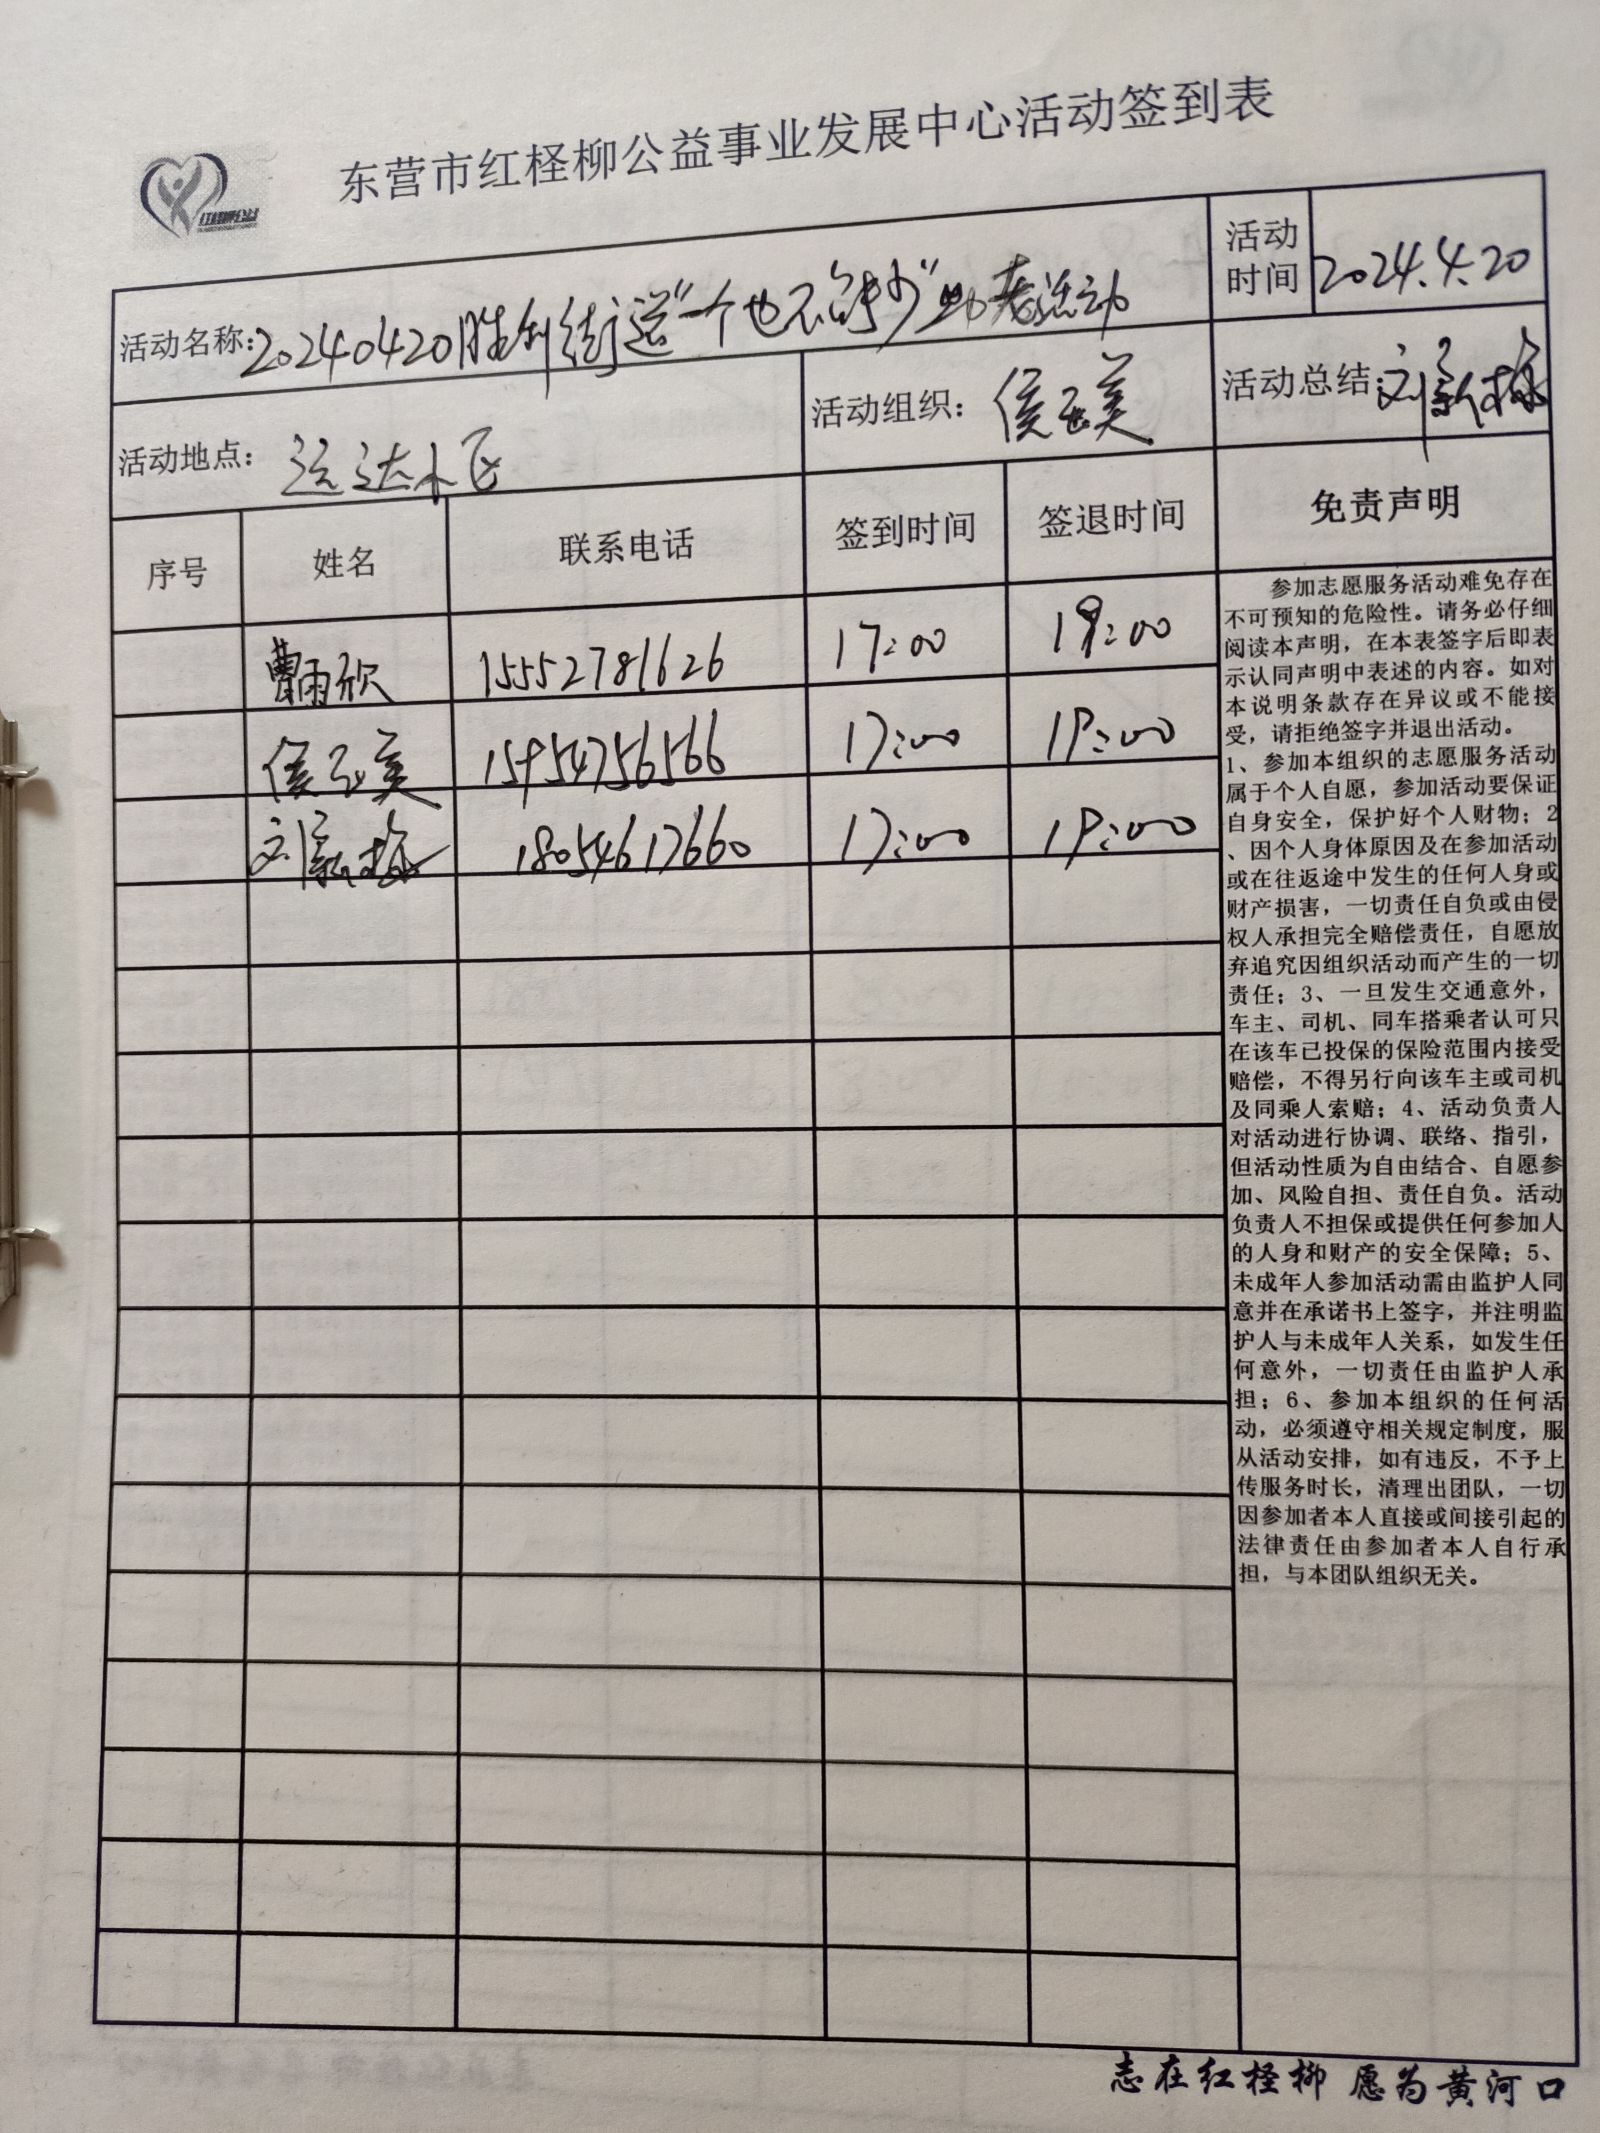 东营市红柽柳公益事业发展中心活动签到表
活动名称：20240420胜利街道“一个也不能少”助老活动
活动时间 2024.4.20
活动地点： 运达小区
活动组织：侯玉美
活动总结：刘新梅
序号 姓名 联系电话 签到时间 签退时间 免责声明
曹雨欣 15552781626 17:00 19:00
侯玉美 15954756566 17:00 19:00
刘新梅 18054617660 17:00 19:00
参加志愿服务活动难免存在
不可预知的危险性。请务必仔细
阅读本声明，在本表签字后即表
示认同声明中表述的内容。如对
本说明条款存在异议或不能接
受，请拒绝签字并退出活动。
1、参加本组织的志愿服务活动
属于个人自愿，参加活动要保证
自身安全，保护好个人财物；2
、因个人身体原因及在参加活动
或在往返途中发生的任何人身或
财产损害，一切责任自负或由侵
权人承担完全赔偿责任，自愿放
弃追究因组织活动而产生的一切
责任；3、一旦发生交通意外，
车主、司机、同车搭乘者认可只
在该车已投保的保险范围内接受
赔偿，不得另行向该车主或司机
及同乘人索赔；4、活动负责人
对活动进行协调、联络、指引，
但活动性质为自由结合、自愿参
加、风险自担、责任自负。活动
负责人不担保或提供任何参加人
的人身和财产的安全保障；5、
未成年人参加活动需由监护人同
意并在承诺书上签字，并注明监
护人与未成年人关系，如发生任
何意外，一切责任由监护人承
担；6、参加本组织的任何活
动，必须遵守相关规定制度，服
从活动安排，如有违反，不予上
传服务时长，清理出团队，一切
因参加者本人直接或间接引起的
法律责任由参加者本人自行承
担，与本团队组织无关。
志在红柽柳 愿为黄河口